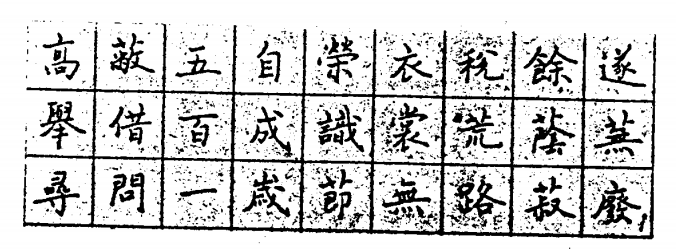 遂蕪廢
餘蔭菽
稅荒路
衣裳無
榮識節
自成歲
五百一
蔽借問
高舉尋